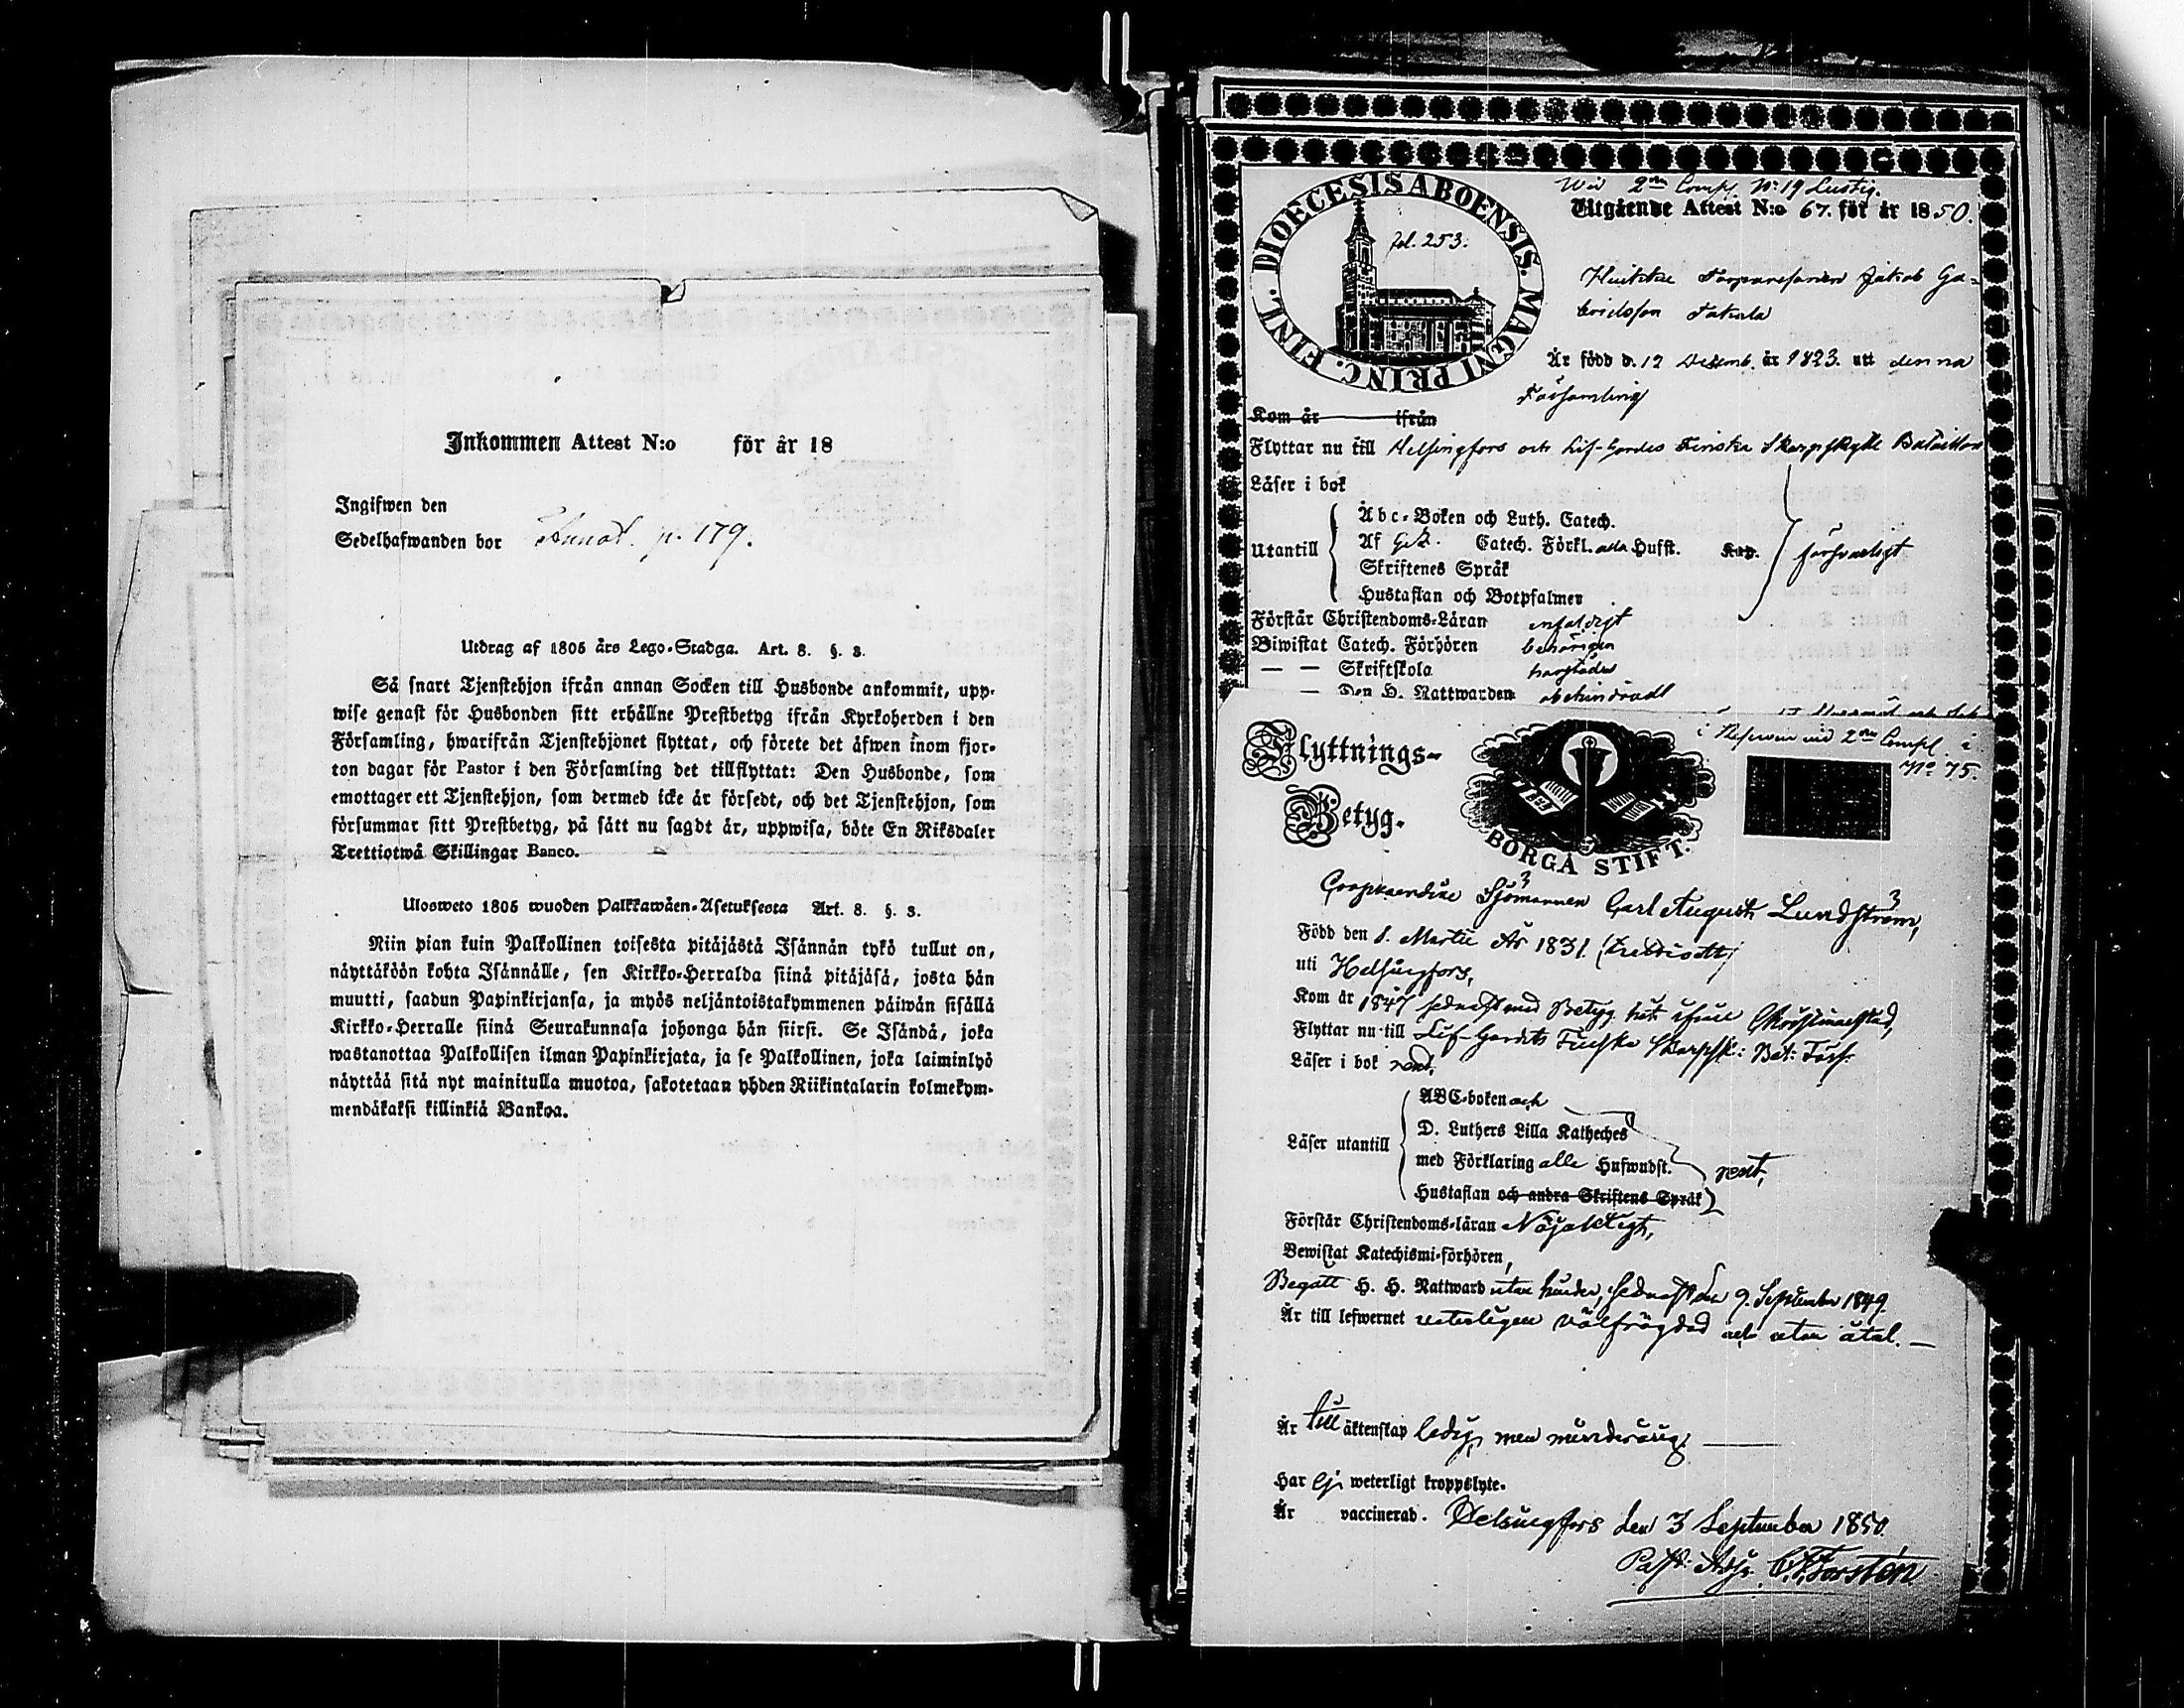 Inkommen Attest N:o för år 18
Ingifwen den
Sedelhafwanden bor Annot. p. 179.
Utdrag af 1805 års Lego-Stadga. Art. 8. §. 3.
Så snart Tjenstehjon ifrån annan Socken till Husbonde ankommit, upp-
wise genast för Husbonden sitt erhållne Prestbetyg ifrån Kyrkoherden i den
Församling, hwarifrån Tjenstehjonet flyttat, och förete det äfwen inom fjor-
ton dagar för Pastor i den Församling det tillflyttat: Den Husbonde, som
emottager ett Tjenstehjon, som dermed icke är försedt, och det Tjenstehjon, som
försummar sitt Prestbetyg, på sätt nu sagdt är, uppwisa, böte En Riksdaler
Trettiotwå Skillingar Banco.
Ulosweto 1805 wuoden Palkkawäen-Asetuksesta Art. 8. §. 3.
Niin pian kuin Palkollinen toisesta pitäjästä Isännän tykö tullut on,
näyttäköön kohta Isännälle, sen Kirkko-Herralda siinä pitäjäsä, josta hän
muutti, saadun Papinkirjansa, ja myös neljäntoistakymmenen päiwän sisällä
Kirkko-Herralle siinä Seurakunnasa johonga hän siirsi. Se Isändä, joka
wastanottaa Palkollisen ilman Papinkirjata, ja se Palkollinen, joka laiminlyö
näyttää sitä nyt mainitulla muotoa, sakotetaan yhden Riikintalarin kolmekym-
mendäkaksi killinkiä Bankoa.
DIOECESIS ABOENSIS. MAGNI PRINC. FINL.
fol. 253.
Wid 2dra Comp. No: 19 Lustig.
Utgående Attest N:o 67. för år 1850.
Torparesonen Jakob Ga-
brielsson
Är född d. 12 Decemb. år 1823. utt denna
Församling
Kom år ifrån
Flyttar nu till Helsingfors och Lif-Gardes Finska Skarpskytte Bataillon
Läser i bok
Utantill
Abc-Boken och Luth. Catech.
Af Catech. Förkl. alla Hufst. Kap.
Skriftenes Språk
Hustaflan och Botpsalmer
försvarligt
Förstår Christendoms-Läran enfaldigt
Biwistat Catech. Förhören behörigen
— — Skriftskola
— Den H. Nattwarden obehindradt
i Reserven vid 2dra Comp. i
No 75.
Flyttnings-
Betyg.
BORGÅ STIFT.
Sjömannen Carl August Lundström,
Född den 8. Martii År 1831. (trettioett)
uti Helsingfors,
Kom år 1847 sednast med Betyg hit ifrån Christinæstad,
Flyttar nu till Lif-Gardets Finska Skarpsk: Bat: Förs.
Läser i bok rent,
Läser utantill
ABC-boken och
D. Luthers Lilla Katheches
med Förklaring alle Hufwudst.
Hustaflan och andra Skriftens Språk
rent,
Förstår Christendoms-läran Nöjaktigt,
Bewistat Katechismi-förhören,
Begått H. H. Nattward utan hinder, sednast den 9. September 1849.
Är till lefwernet veterligen välfrägdad och utan åtal. —
Är till äktenskap ledig, men minderårig. —
Har Ej weterligt kroppslyte.
Är vaccinerad. Helsingfors den 3 September 1850.
Past: Adj: